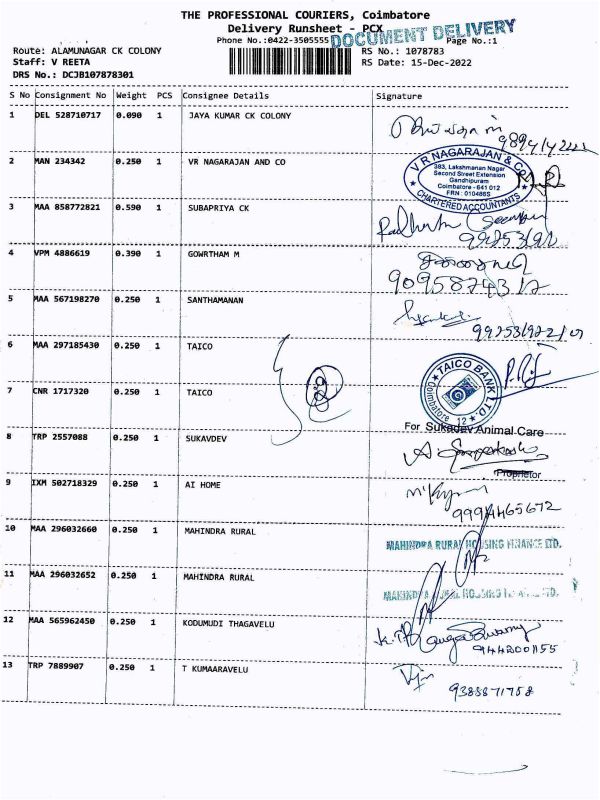 THE PROFESSIONAL COURIERS, Coimbatore
Delivery Runsheet - PCX
DOCUMENT DELIVERY
Phone No.:0422-3505555 Page No.:1
Route: ALAMUNAGAR CK COLONY RS No.: 1078783
Staff: V REETA RS Date: 15-Dec-2022
DRS No.: DCJB107878301
S No Consignment No Weight PCS Consignee Details Signature
1 DEL 528710717 0.090 1 JAYA KUMAR CK COLONY
2 MAN 234342 0.250 1 VR NAGARAJAN AND CO
V R NAGARAJAN & Co
383, Lakshmanan Nagar
Second Street Extension
Gandhipuram
Coimbatore - 641 012
FRN : 010466S
★ CHARTERED ACCOUNTANTS ★
3 MAA 858772821 0.590 1 SUBAPRIYA CK
4 VPM 4886619 0.390 1 GOWRTHAM M
5 MAA 567198270 0.250 1 SANTHAMANAN
6 MAA 297185430 0.250 1 TAICO
★ TAICO BANK LTD. ★
Coimbatore 12
7 CNR 1717320 0.250 1 TAICO
For Sukadev Animal Care
8 TRP 2557088 0.250 1 SUKAVDEV
Proprietor
9 IXM 502718329 0.250 1 AI HOME
9994465672
10 MAA 296032660 0.250 1 MAHINDRA RURAL
MAHINDRA RURAL HOUSING FINANCE LTD.
11 MAA 296032652 0.250 1 MAHINDRA RURAL
12 MAA 565962450 0.250 1 KODUMUDI THAGAVELU
13 TRP 7889907 0.250 1 T KUMAARAVELU